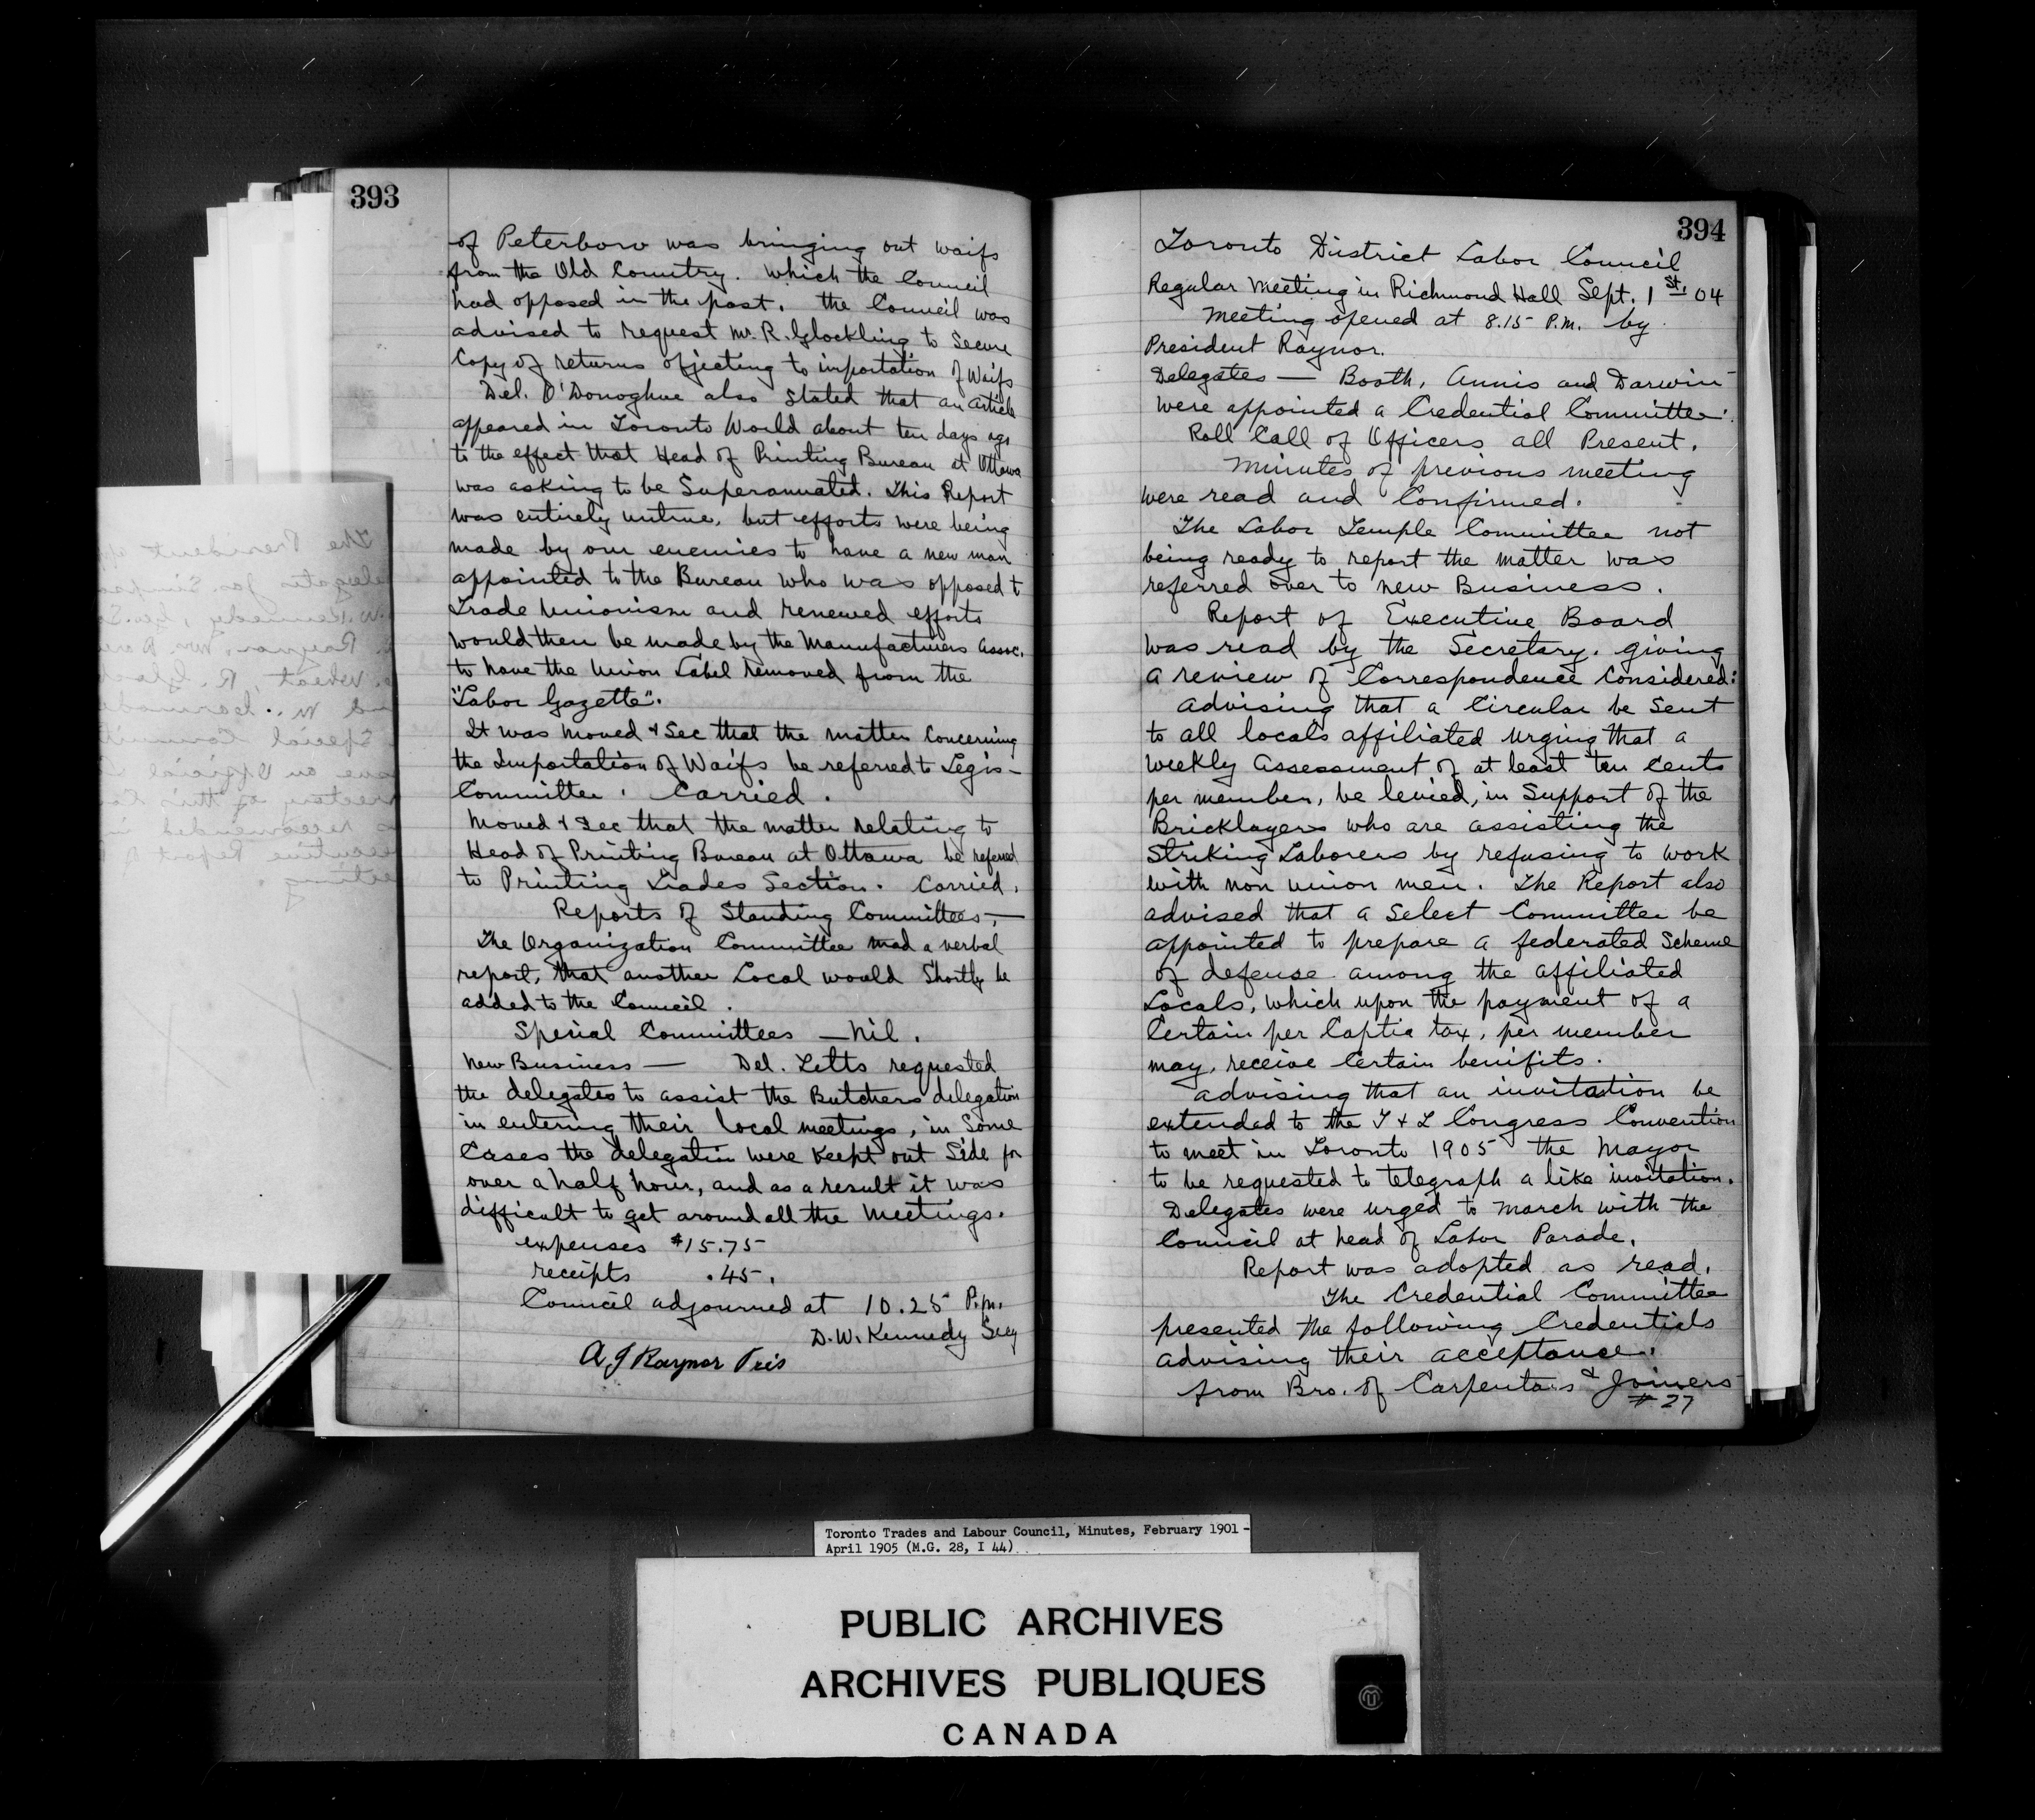 393
of Peterboro was bringing out waifs
from the Old Country. which the Council
had opposed in the past. the Council was
advised to request Mr. R. Glockling to Secure
Copy of returns ofjecting to importation of Waifs
Del. O'Donoghue also stated that an article
appeared in Toronto World about ten days ago
to the effect that Head of Printing Bureau at Ottawa
was asking to be Superannuated. This Report
was entirely untrue, but efforts were being
made by our enemies to have a new man
appointed to the Bureau who was opposed t
Trade Unionism and renewed efforts
would then be made by the Manufacturers Assoc.
to have the Union Label removed from the
"Labor Gazette".
It was moved & Sec that the matter Concerning
the Importation of Waifs be referred to Legis-
Committee. Carried.
Moved & Sec that the matter relating to
Head of Printing Bureau at Ottawa be referred
to Printing Trades Section. Carried.
Reports of Standing Committees,—
The Organization Committee mad a verbal
report, that another Local would Shortly be
added to the Council.
Special Committees — Nil.
New Business — Del. Letts requested
the delegates to assist the Butchers delegation
in entering their local meetings, in Some
Cases the delegation were keept out Side for
over a half hour, and as a result it was
difficult to get around all the meetings.
expenses $15.75
receipts .45.
Council adjourned at 10.25 P.m.
D.W. Kennedy Secy
A J Raynor Pres
394
Toronto District Labor Council
Regular Meeting in Richmond Hall Sept. 1st. 04
Meeting opened at 8.15 P.m. by
President Raynor.
Delegates — Booth, Annis and Darwin
were appointed a Credential Committee.
Roll Call of Officers all Present.
Minutes of previous meeting
were read and Confirmed.
The Labor Temple Committee not
being ready to report the matter was
referred over to new Business.
Report of Executive Board
was read by the Secretary. giving
a review of Correspondence Considered:
Advising that a Circular be Sent
to all locals affiliated urging that a
weekly Assessment of at least ten Cents
per member, be levied, in Support of the
Bricklayers who are assisting the
Striking Laborers by refusing to work
with non union men. The Report also
advised that a Select Committee be
appointed to prepare a federated Scheme
of defense among the affiliated
Locals, which upon the payment of a
Certain per Captia tax, per member
may, receive Certain benifits.
Advising that an invitation be
extended to the T & L Congress Convention
to meet in Toronto 1905 the Mayor
to be requested to telegraph a like invitation.
Delegates were urged to march with the
Council at head of Labor Parade.
Report was adopted as read.
The Credential Committee
presented the following Credentials
advising their acceptance.
from Bro. of Carpenters & Joiners
# 27
Toronto Trades and Labour Council, Minutes, February 1901 -
April 1905 (M.G. 28, I 44)
PUBLIC ARCHIVES
ARCHIVES PUBLIQUES
CANADA